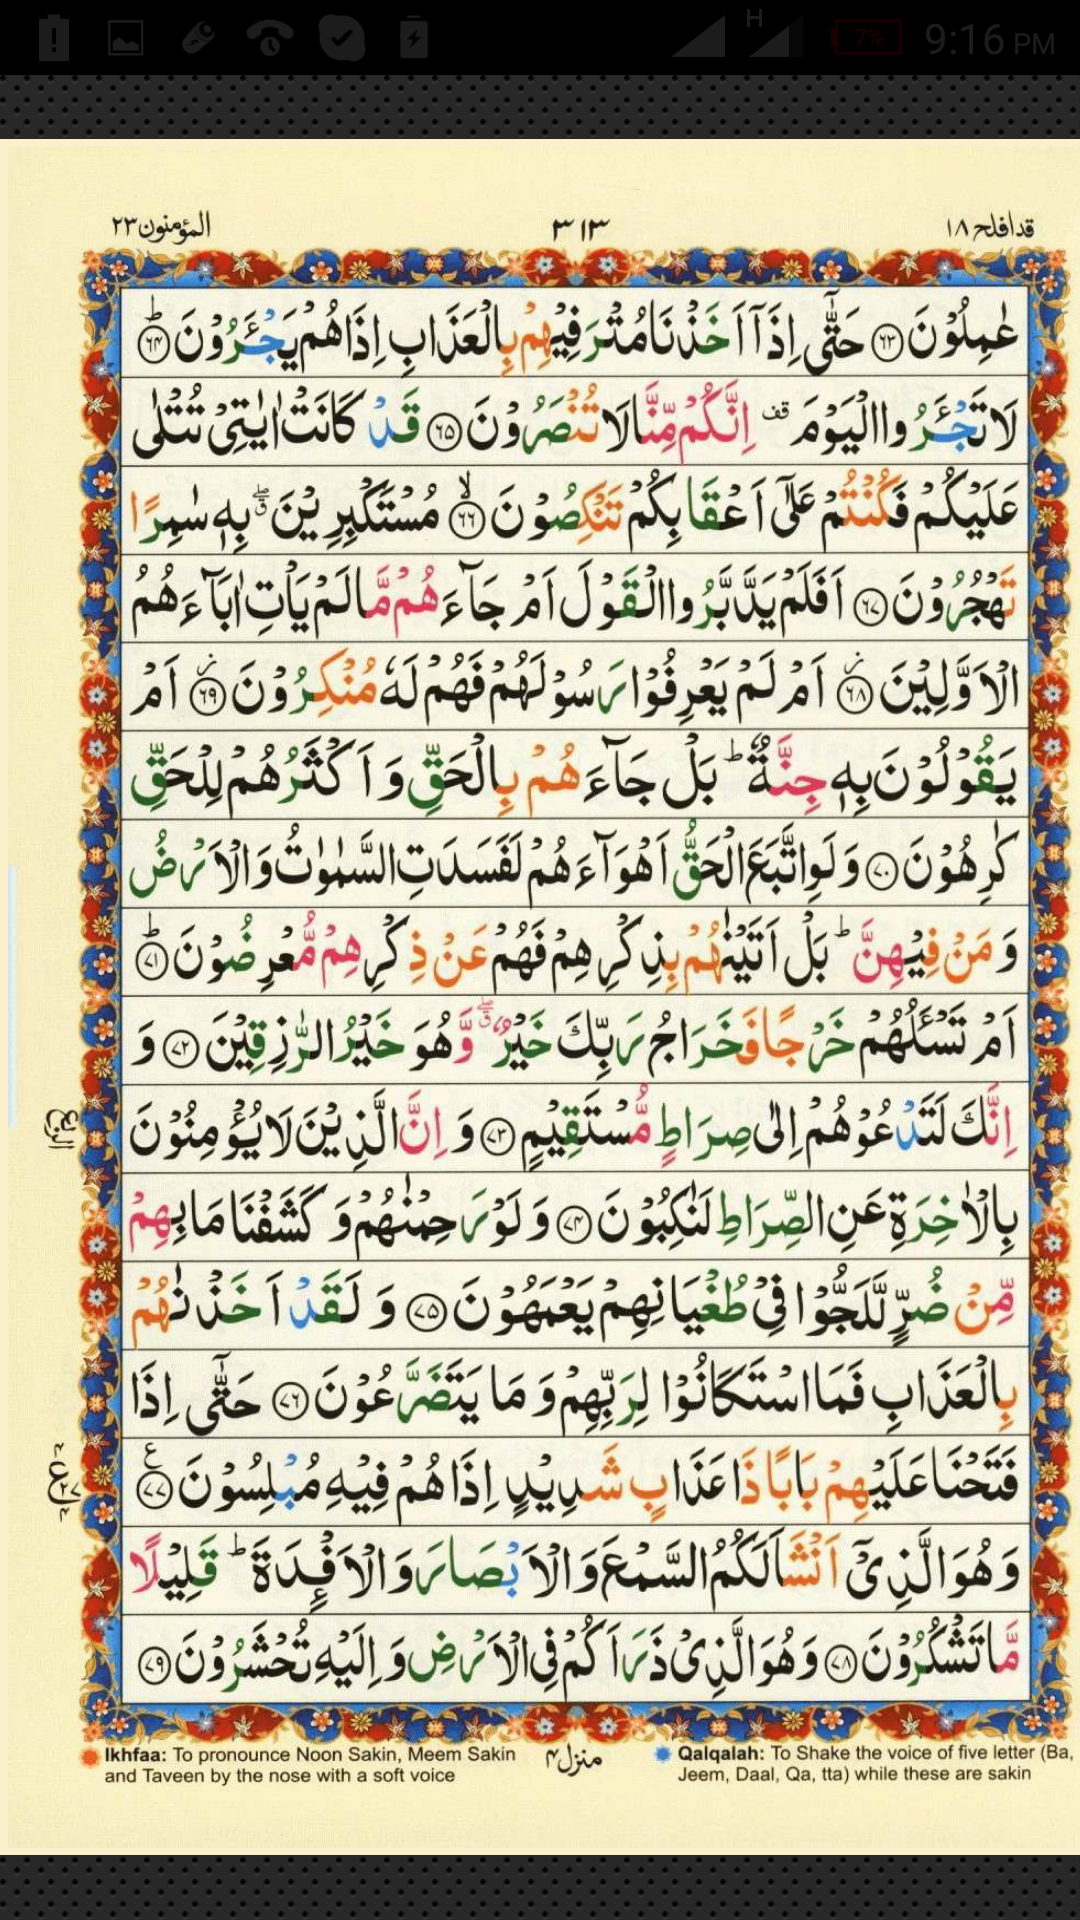 H 7% 9:16 PM
قدافلح ١٨ ٣١٣ المؤمنون ٢٣
عٰمِلُوْنَ ۝٦٣ حَتّٰۤى اِذَاۤ اَخَذْنَا مُتْرَفِيْهِمْ بِالْعَذَابِ اِذَا هُمْ يَجْـَٔرُوْنَ ۝٦٤ؕ
لَا تَجْـَٔرُوا الْيَوْمَ قف اِنَّكُمْ مِّنَّا لَا تُنْصَرُوْنَ ۝٦٥ قَدْ كَانَتْ اٰيٰتِىْ تُتْلٰى
عَلَيْكُمْ فَكُنْتُمْ عَلٰۤى اَعْقَابِكُمْ تَنْكِصُوْنَ ۝٦٦ۙ مُسْتَكْبِرِيْنَ ۖق بِهٖ سٰمِرًا
تَهْجُرُوْنَ ۝٦٧ اَفَلَمْ يَدَّبَّرُوا الْقَوْلَ اَمْ جَآءَهُمْ مَّا لَمْ يَاْتِ اٰبَآءَهُمُ
الْاَوَّلِيْنَ ۝٦٨ز اَمْ لَمْ يَعْرِفُوْا رَسُوْلَهُمْ فَهُمْ لَهٗ مُنْكِرُوْنَ ۝٦٩ز اَمْ
يَقُوْلُوْنَ بِهٖ جِنَّةٌ ؕ بَلْ جَآءَهُمْ بِالْحَقِّ وَ اَكْثَرُهُمْ لِلْحَقِّ
كٰرِهُوْنَ ۝٧٠ وَ لَوِ اتَّبَعَ الْحَقُّ اَهْوَآءَهُمْ لَفَسَدَتِ السَّمٰوٰتُ وَ الْاَرْضُ
وَ مَنْ فِيْهِنَّ ؕ بَلْ اَتَيْنٰهُمْ بِذِكْرِهِمْ فَهُمْ عَنْ ذِكْرِهِمْ مُّعْرِضُوْنَ ۝٧١ؕ
اَمْ تَسْـَٔلُهُمْ خَرْجًا فَخَرَاجُ رَبِّكَ خَيْرٌ ۖق وَّ هُوَ خَيْرُ الرّٰزِقِيْنَ ۝٧٢ وَ
اِنَّكَ لَتَدْعُوْهُمْ اِلٰى صِرَاطٍ مُّسْتَقِيْمٍ ۝٧٣ وَ اِنَّ الَّذِيْنَ لَا يُؤْمِنُوْنَ
بِالْاٰخِرَةِ عَنِ الصِّرَاطِ لَنٰكِبُوْنَ ۝٧٤ وَ لَوْ رَحِمْنٰهُمْ وَ كَشَفْنَا مَا بِهِمْ
مِّنْ ضُرٍّ لَّلَجُّوْا فِىْ طُغْيَانِهِمْ يَعْمَهُوْنَ ۝٧٥ وَ لَقَدْ اَخَذْنٰهُمْ
بِالْعَذَابِ فَمَا اسْتَكَانُوْا لِرَبِّهِمْ وَ مَا يَتَضَرَّعُوْنَ ۝٧٦ حَتّٰۤى اِذَا
فَتَحْنَا عَلَيْهِمْ بَابًا ذَا عَذَابٍ شَدِيْدٍ اِذَا هُمْ فِيْهِ مُبْلِسُوْنَ ۝٧٧ع
وَ هُوَ الَّذِىْۤ اَنْشَاَ لَكُمُ السَّمْعَ وَ الْاَبْصَارَ وَ الْاَفْـِٕدَةَ ؕ قَلِيْلًا
مَّا تَشْكُرُوْنَ ۝٧٨ وَ هُوَ الَّذِىْ ذَرَاَكُمْ فِى الْاَرْضِ وَ اِلَيْهِ تُحْشَرُوْنَ ۝٧٩
Ikhfaa: To pronounce Noon Sakin, Meem Sakin
and Taveen by the nose with a soft voice
منزل ٤
Qalqalah: To Shake the voice of five letter (Ba,
Jeem, Daal, Qa, tta) while these are sakin